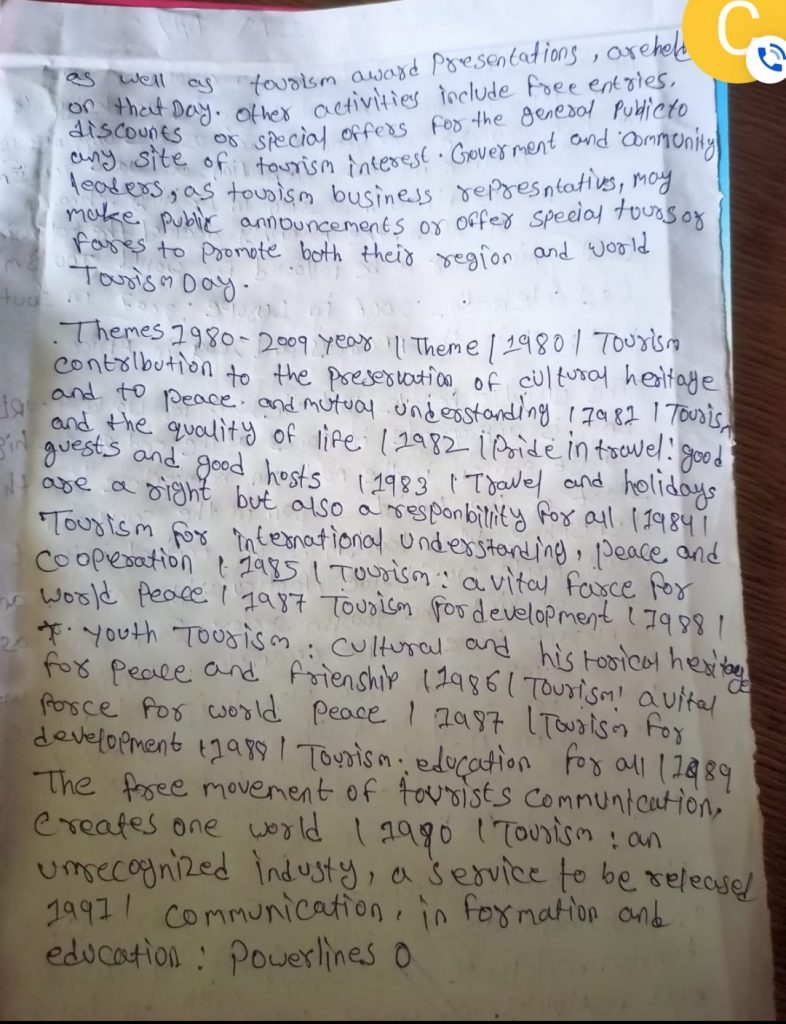 C
as well as tourism award Presentations, are held
on that Day. other activities include free entries,
discounts or special offers for the general Public to
any site of tourism interest. Goverment and Community
leaders, as tourism business represntatives, may
make public announcements or offer special tours or
fares to promote both their region and world
Tourism Day.
. Themes 1980-2009 year || Theme | 1980 | Tourism
contribution to the preservation of cultural heritage
and to peace. and mutual understanding | 1981 | Tourism
and the quality of life | 1982 | Pride in travel: good
guests and good hosts | 1983 | Travel and holidays
are a right but also a responbillity for all | 1984 |
Tourism for international understanding, peace and
Cooperation | 1985 | Tourism: a vital farce for
world Peace | 1987 Tourism for development | 1988 |
*. youth Tourism: cultural and historical heritage
for peace and frienship | 1986 | Tourism: a vital
force for world peace | 1987 | Tourism for
development | 1988 | Tourism: education for all | 1989
The free movement of tourists communication,
Creates one world | 1990 | Tourism: an
unrecognized industy, a service to be released
1991 | communication, in formation and
education: Powerlines O